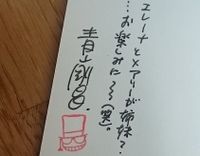 エレーナとメアリーが姉妹?
…お楽しみに〜〜(笑)。
青山剛昌.